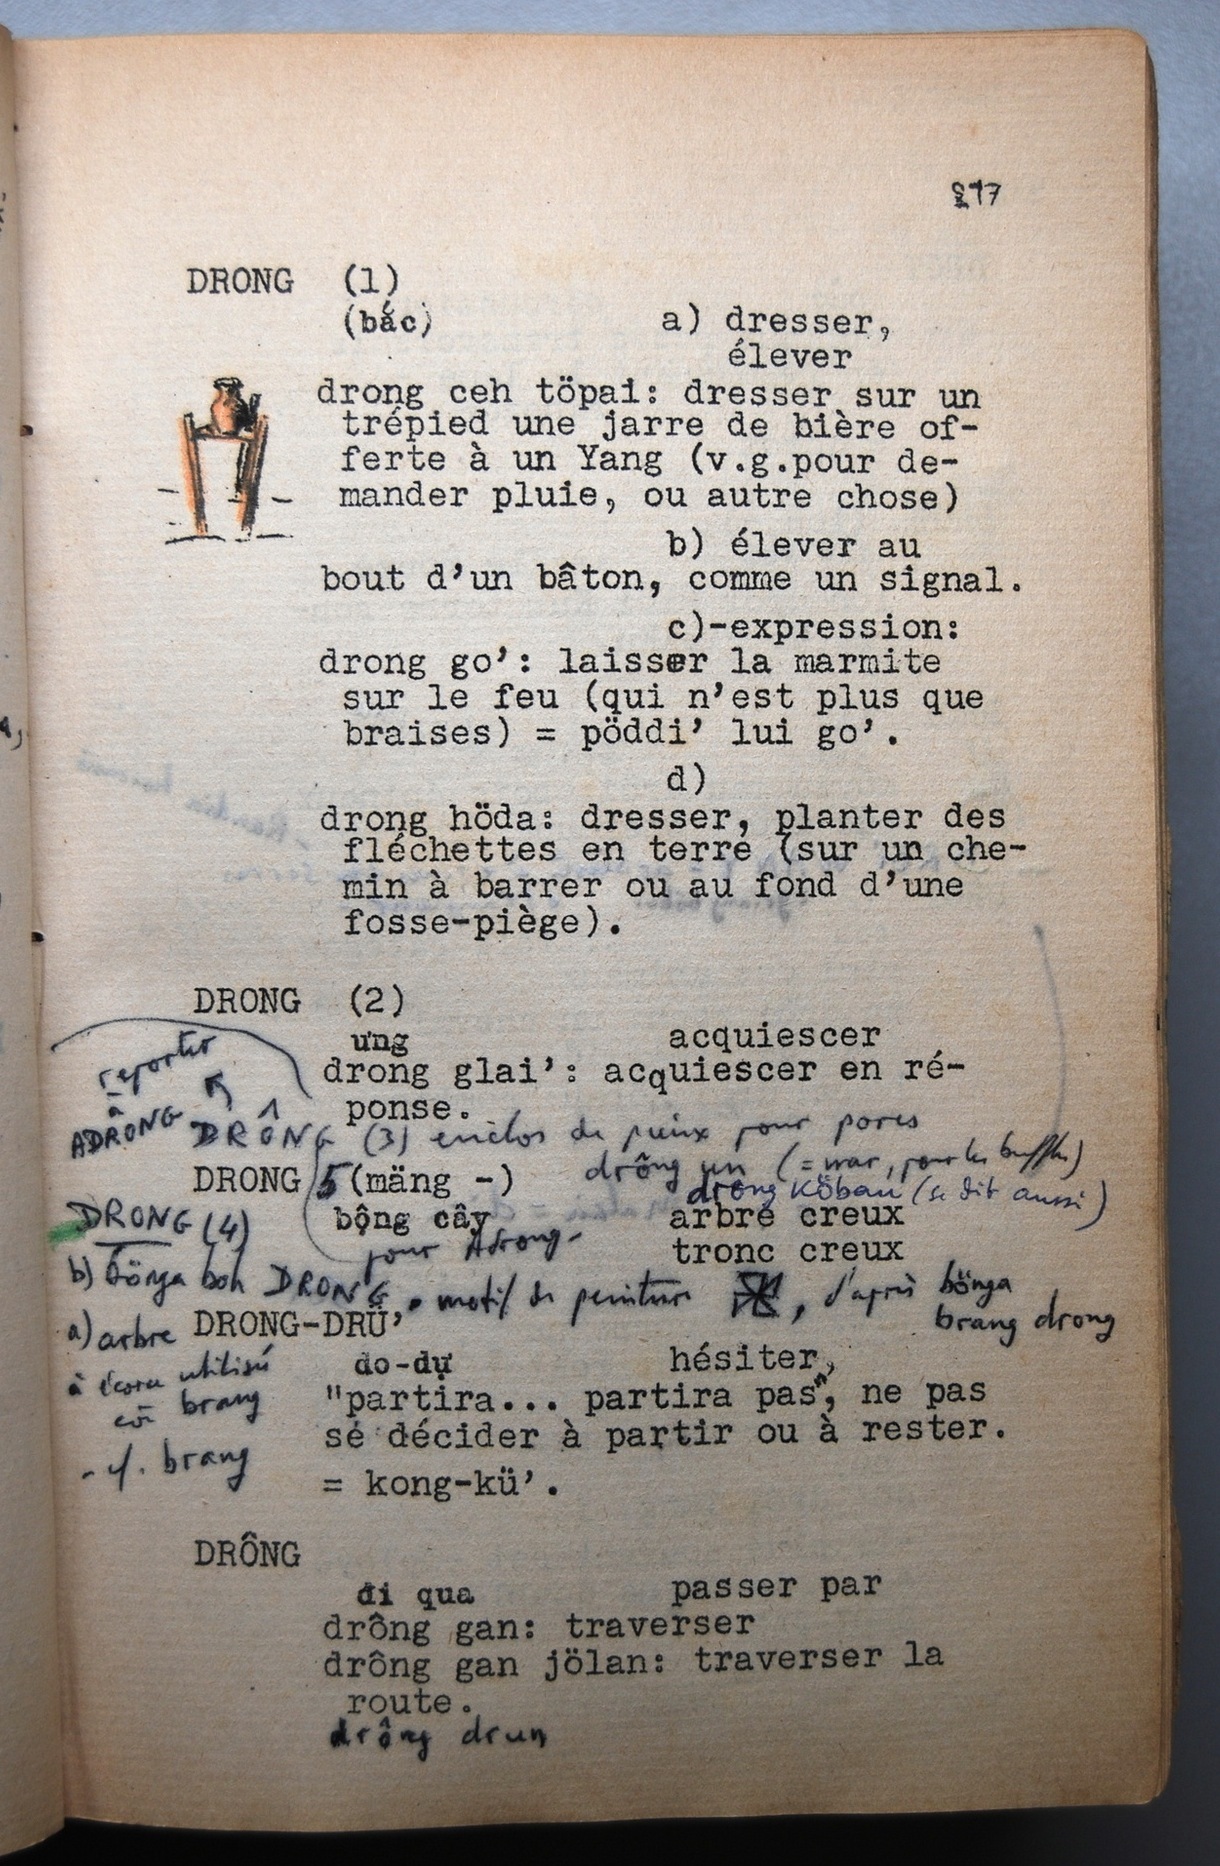 217
DRONG (1)
(bắc) a) dresser,
élever
drong ceh töpai: dresser sur un
trépied une jarre de bière of-
ferte à un Yang (v.g.pour de-
mander pluie, ou autre chose)
b) élever au
bout d'un bâton, comme un signal.
c)-expression:
drong go': laisser la marmite
sur le feu (qui n'est plus que
braises) = pöddi' lui go'.
d)
drong höda: dresser, planter des
fléchettes en terre (sur un che-
min à barrer ou au fond d'une
fosse-piège).
DRONG (2)
ưng acquiescer
drong glai': acquiescer en ré-
ponse.
reporter
à
ADRONG DRÔNG (3) enclos de pieux pour porcs
drông un (= war, pour les buffles)
drong köbau (se dit aussi)
DRONG 5 (mäng -)
bộng cây arbre creux
tronc creux
pour Adrong-
DRONG (4)
b) bönga boh DRONG, motif de peinture , d'après bönga
brang drong
a) arbre
à écorce utilisé
brang
- cf. brang
DRONG-DRÜ'
do-dự hésiter,
"partira... partira pas", ne pas
se décider à partir ou à rester.
= kong-kü'.
DRÔNG
đi qua passer par
drông gan: traverser
drông gan jölan: traverser la
route.
drông drun